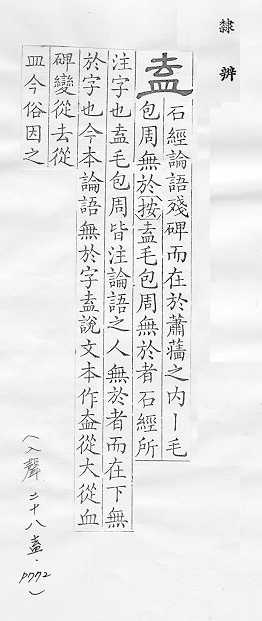 隸辨
盍
石經論語殘碑而在於蕭牆之内丨毛
包周無於按盍毛包周無於者石經所
注字也盍毛包周皆注論語之人無於者而在下無
於字也今本論語無於字盍說文本作盇從大從血
碑變從去從
皿今俗因之
(入聲二十八盍.P772)